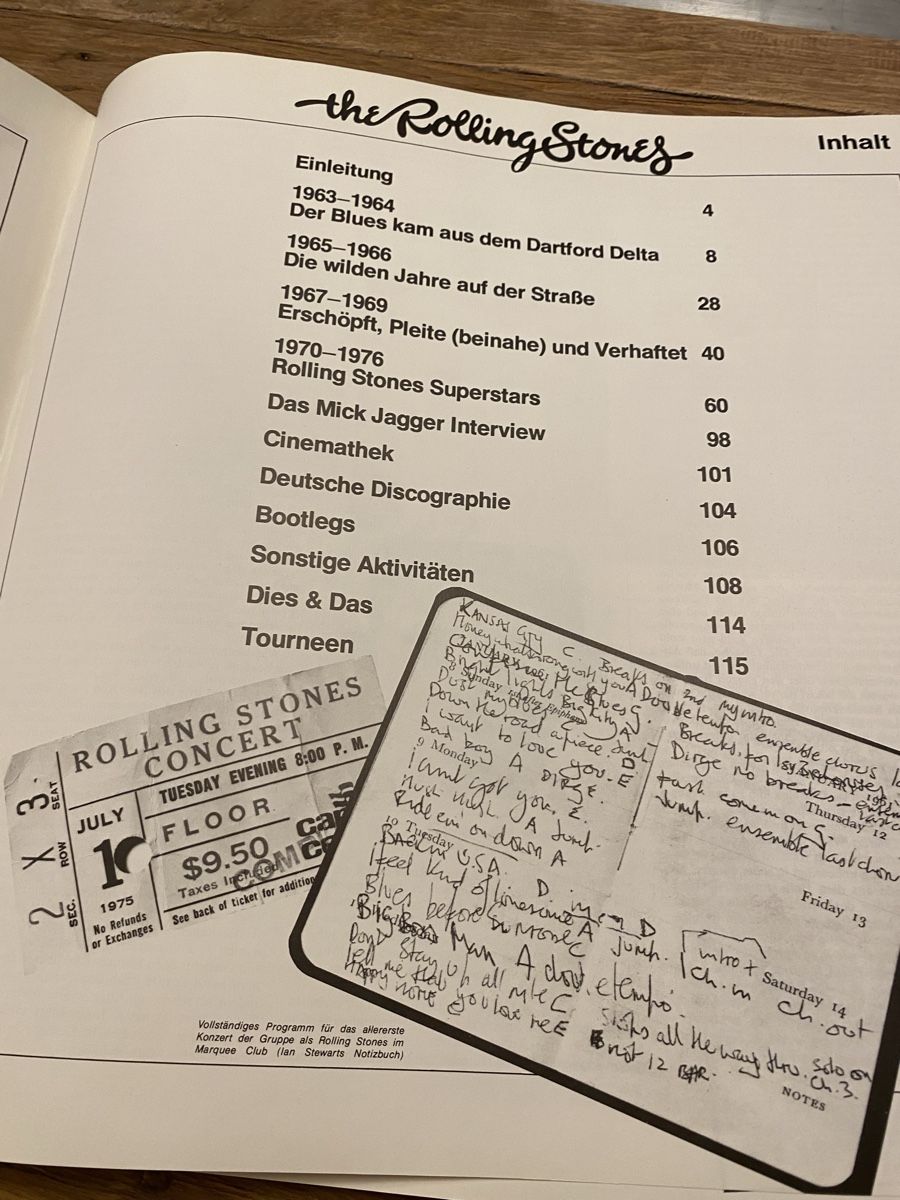 the Rolling Stones
Inhalt
Einleitung 4
1963–1964
Der Blues kam aus dem Dartford Delta 8
1965–1966
Die wilden Jahre auf der Straße 28
1967–1969
Erschöpft, Pleite (beinahe) und Verhaftet 40
1970–1976
Rolling Stones Superstars 60
Das Mick Jagger Interview 98
Cinemathek 101
Deutsche Discographie 104
Bootlegs 106
Sonstige Aktivitäten 108
Dies & Das 114
Tourneen 115
ROLLING STONES
CONCERT
TUESDAY EVENING 8:00 P. M.
2 X 3.
SEC. ROW SEAT
JULY
1975
No Refunds
or Exchanges
FLOOR
$9.50
Taxes Included
See back of ticket for addition
KANSAS CITY C. Breaks on 2nd
Bright lights Big City
8 Sunday
Dust my
Down the road apiece
I want to love you. E
Bad boy A DIRGE.
9 Monday
I ain't got you. E.
A Jump.
Ride em on down A
10 Tuesday
BACK IN U.S.A. D.
I feel kind of lonesome A Jump.
Blues before sunrise C
Big Boss Man A
Don't Stay up all nite C.
Tell me that you love me E
Happy home
ensemble chorus
Dirge no breaks
Thursday 12
Jump. ensemble last chorus
Friday 13
intro +
Saturday 14
ch. in ch. out
all the way thru. solo on
ch. 3.
not 12 BAR.
NOTES
Vollständiges Programm für das allererste
Konzert der Gruppe als Rolling Stones im
Marquee Club (Ian Stewarts Notizbuch)